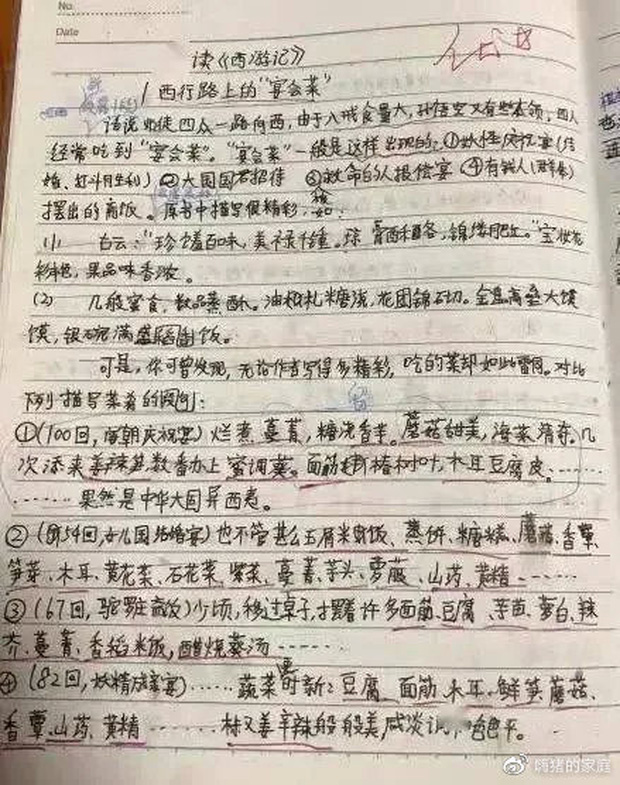 No.
Date
读《西游记》
西行路上的"宴会菜"
话说师徒四人一路向西,由于八戒食量大,孙悟空又有些本领,四人
经常吃到"宴会菜"。"宴会菜"一般是这样出现的:①妖怪庆祝宴(结
婚、打斗胜利)②大国国君招待 ③救命的人报偿宴 ④有钱人
摆出的斋饭。原书中描写很精彩,
(1) 白云:"珍馐百味,美禄千钟。琼膏酥酪,锦缕肥红。"宝妆花
彩艳,果品味香浓。
(2) 几般蜜食,数品蒸酥。油札糖浇,花团锦砌。金盘高垒大馍
馍,银碗满盛稻饭。
可是,你可曾发现,无论作者写得多精彩,吃的菜却如此雷同。对比
下列描写菜肴的
①(100回,唐朝庆祝宴)烂煮蔓菁,糖浇香芋。蘑菇甜美,海菜清奇。几
次添来姜辣笋,数番办上蜜调葵。面筋椿树叶,木耳豆腐皮。……
……果然是中华大国异西夷。
②(第54回,女儿国结婚宴)也不管甚么玉屑米饭、蒸饼、糖糕、蘑菇、香蕈、
笋芽、木耳、黄花菜、石花菜、紫菜、蔓菁、芋头、萝菔、山药、黄精……
③(67回,驼罗庄斋饭)少顷,移过桌子,摆着许多面筋、豆腐、芋苗、萝白、辣
芥、蔓菁、香稻米饭,醋烧葵汤……
④(82回,妖精宴)……蔬菜更时新:豆腐、面筋、木耳、鲜笋、蘑菇、
香蕈、山药、黄精……椒姜辛辣般般美,咸淡
嗨猪的家庭